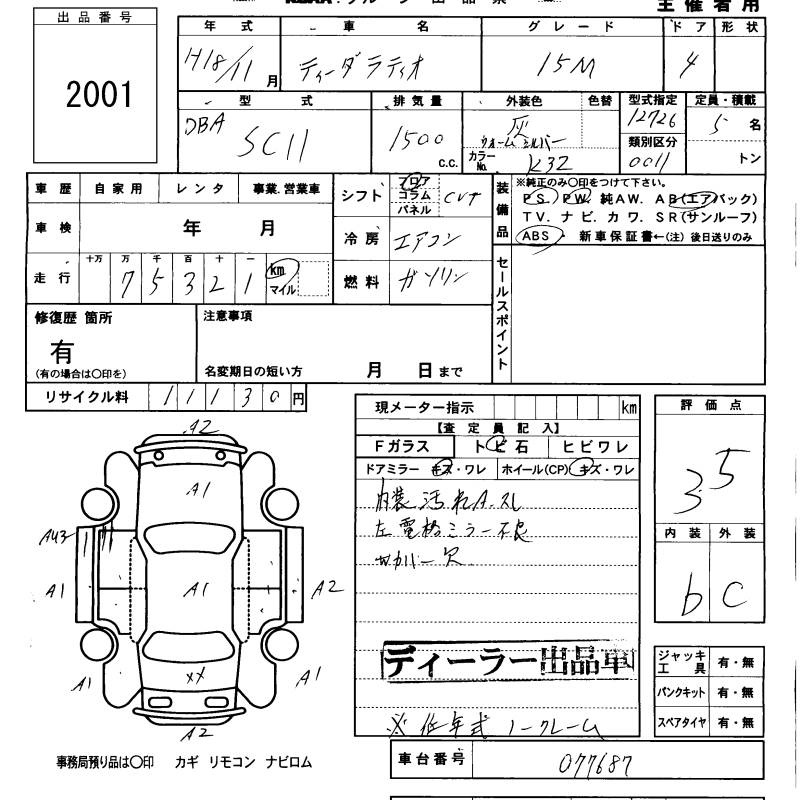 主催者用
出品番号
2001
年式 車名 グレード ドア 形状
H18/11月 ティーダラティオ 15M 4
型式 排気量 外装色 色替 型式指定 定員・積載
DBA SC11 1500 c.c. 灰 12726 5名
ウォームシルバー 類別区分
カラーNo. K32 0011 トン
車歴 自家用 レンタ 事業.営業車
シフト フロア コラム パネル CVT
装備品 ※純正のみ〇印をつけて下さい。
PS. PW. 純AW. AB(エアバック)
TV. ナビ. カワ. SR(サンルーフ)
ABS. 新車保証書←(注) 後日送りのみ
車検 年 月
冷房 エアコン
走行 十万 万 千 百 十 一
75321 km マイル
燃料 ガソリン
セールスポイント
修復歴 箇所 注意事項
有
(有の場合は〇印を) 名変期日の短い方 月 日まで
リサイクル料 11130円
現メーター指示 km
【査定員記入】
Fガラス トビ石 ヒビワレ
ドアミラー キズ・ワレ ホイール(CP) キズ・ワレ
内装汚れA.スレ
左電格ミラー不良
カバー欠
ディーラー出品車
※低年式ノークレーム
評価点
3.5
内装 外装
b C
ジャッキ工具 有・無
パンクキット 有・無
スペアタイヤ 有・無
車台番号 077687
A2
A1
AU3
A1 A1 A2
A1 XX A1
A2
事務局預り品は〇印 カギ リモコン ナビロム